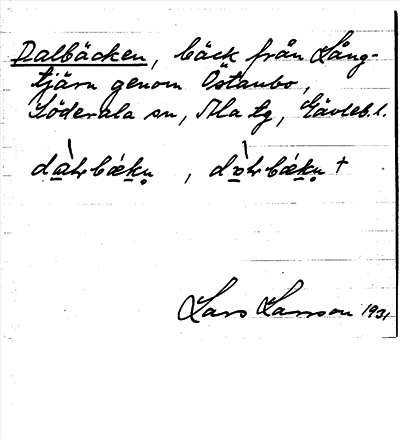 Dalbäcken, bäck från Lång-
tjärn genom Östanbo,
Söderala sn, Ala tg, Gävleb. l.
Lars Larsson 1931